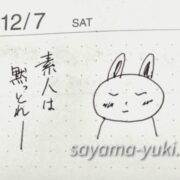 12/7 SAT
素人は
黙っとれー
sayama-yuki.